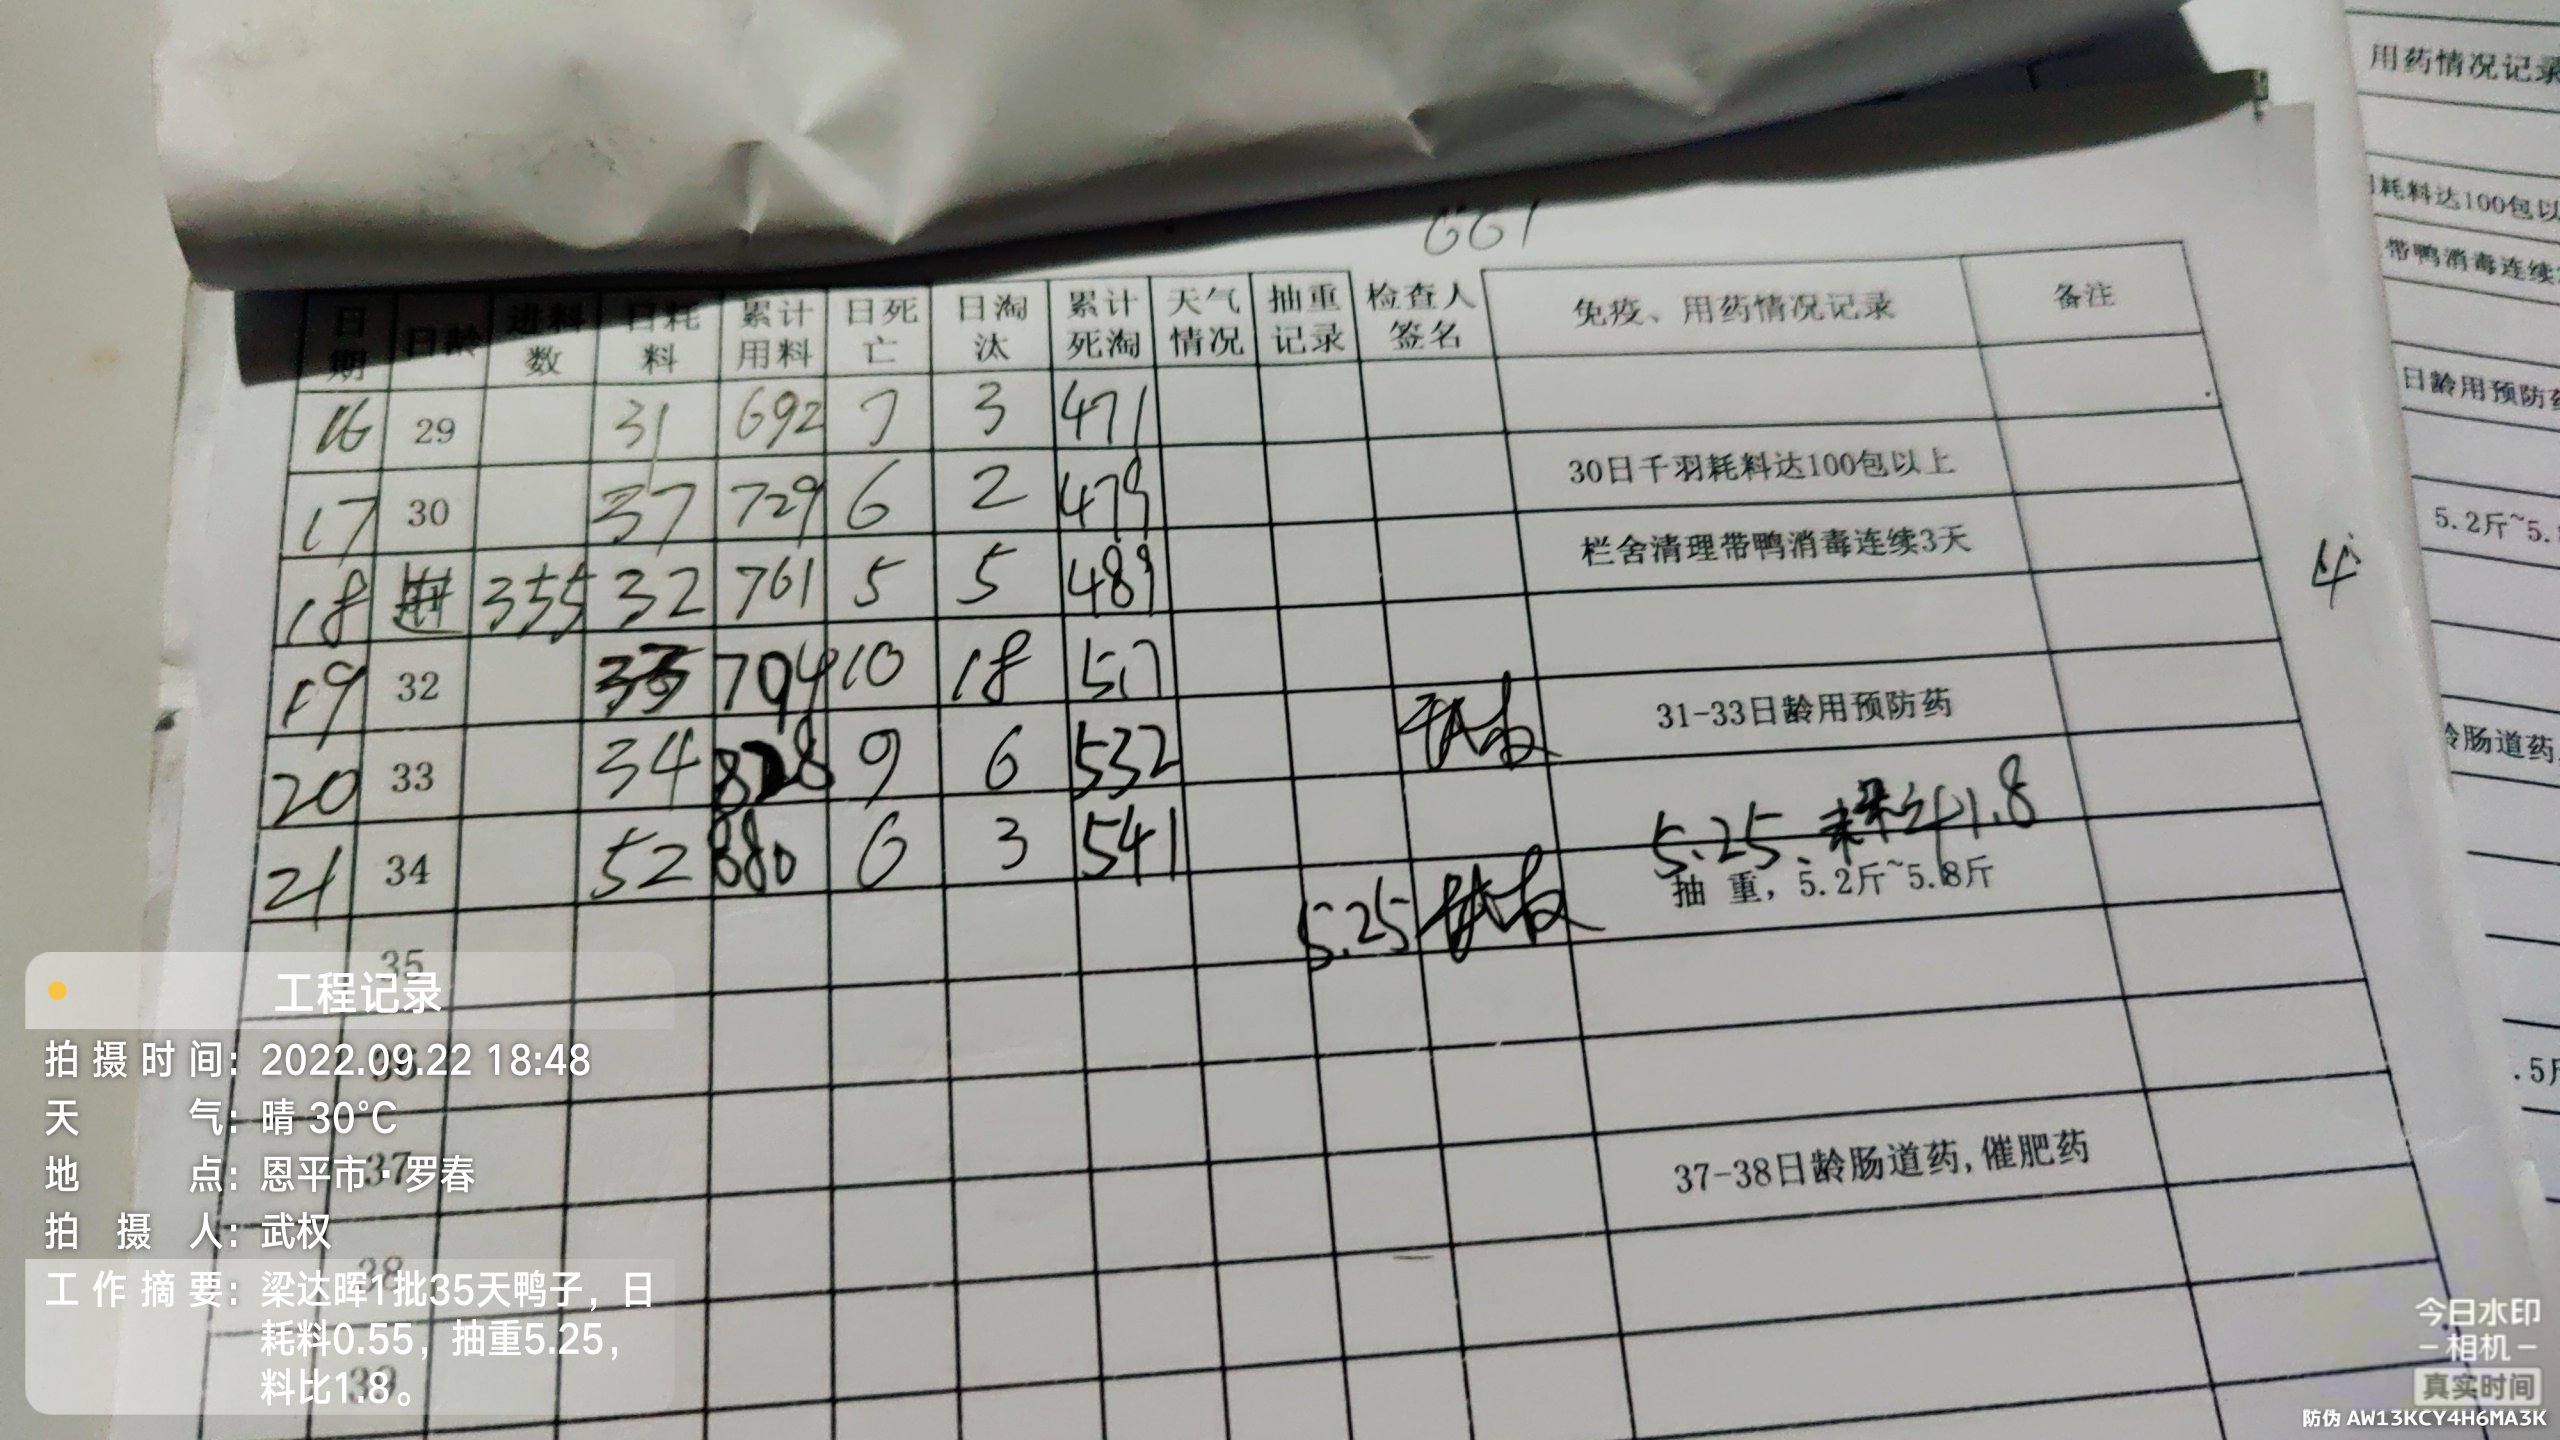 用药情况记录
耗料达100包以
带鸭消毒连续
日龄用预防药
5.2斤~5.
肠道药
661
日期 日龄 进料数 日耗料 累计用料 日死亡 日淘汰 累计死淘 天气情况 抽重记录 检查人签名 免疫、用药情况记录 备注
16 29 31 692 7 3 471
17 30 37 729 6 2 479 30日千羽耗料达100包以上
18 进 355 32 761 5 5 489 栏舍清理带鸭消毒连续3天
19 32 33 794 10 18 517
20 33 34 828 9 6 532 31-33日龄用预防药
21 34 52 880 6 3 541
5.25 料比1.8
5.25 抽 重，5.2斤~5.8斤
35
36
37
37-38日龄肠道药,催肥药
38
39
工程记录
拍摄时间：2022.09.22 18:48
天气：晴 30°C
地点：恩平市·罗春
拍摄人：武权
工作摘要：梁达晖1批35天鸭子，日
耗料0.55，抽重5.25，
料比1.8。
今日水印
-相机-
真实时间
防伪 AW13KCY4H6MA3K